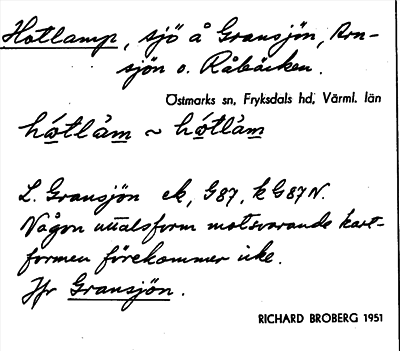 Hotlamp, sjö å Gransjön, Arn-
sjön o. Råbäcken.
Östmarks sn, Fryksdals hd, Värml. län
L. Gransjön ek, G87, kG87N.
Någon uttalsform motsvarande kart-
formen förekommer icke.
Jfr Gransjön.
RICHARD BROBERG 1951